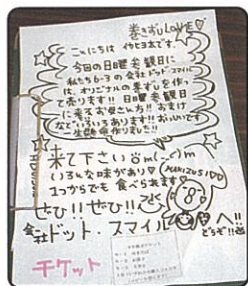 巻きずしLOVE♡
こんにちは
今回の日曜参観日に
私たち6-3の会社ドット・スマイル
は、オリジナルの巻ずしを作っ
て売ります!! 日曜参観日
に来てお母さん方!! おまけ
などいろいろあります!! おいしいです
一生懸命作りました!!
来て下さい m(_ _)m
いろんな味があり♡
1つからでも 食べられます
MAKIZUSI DO
ぜひ!!ぜひ!!
会社ドット・スマイル へ!!
どうぞ!!
チケット